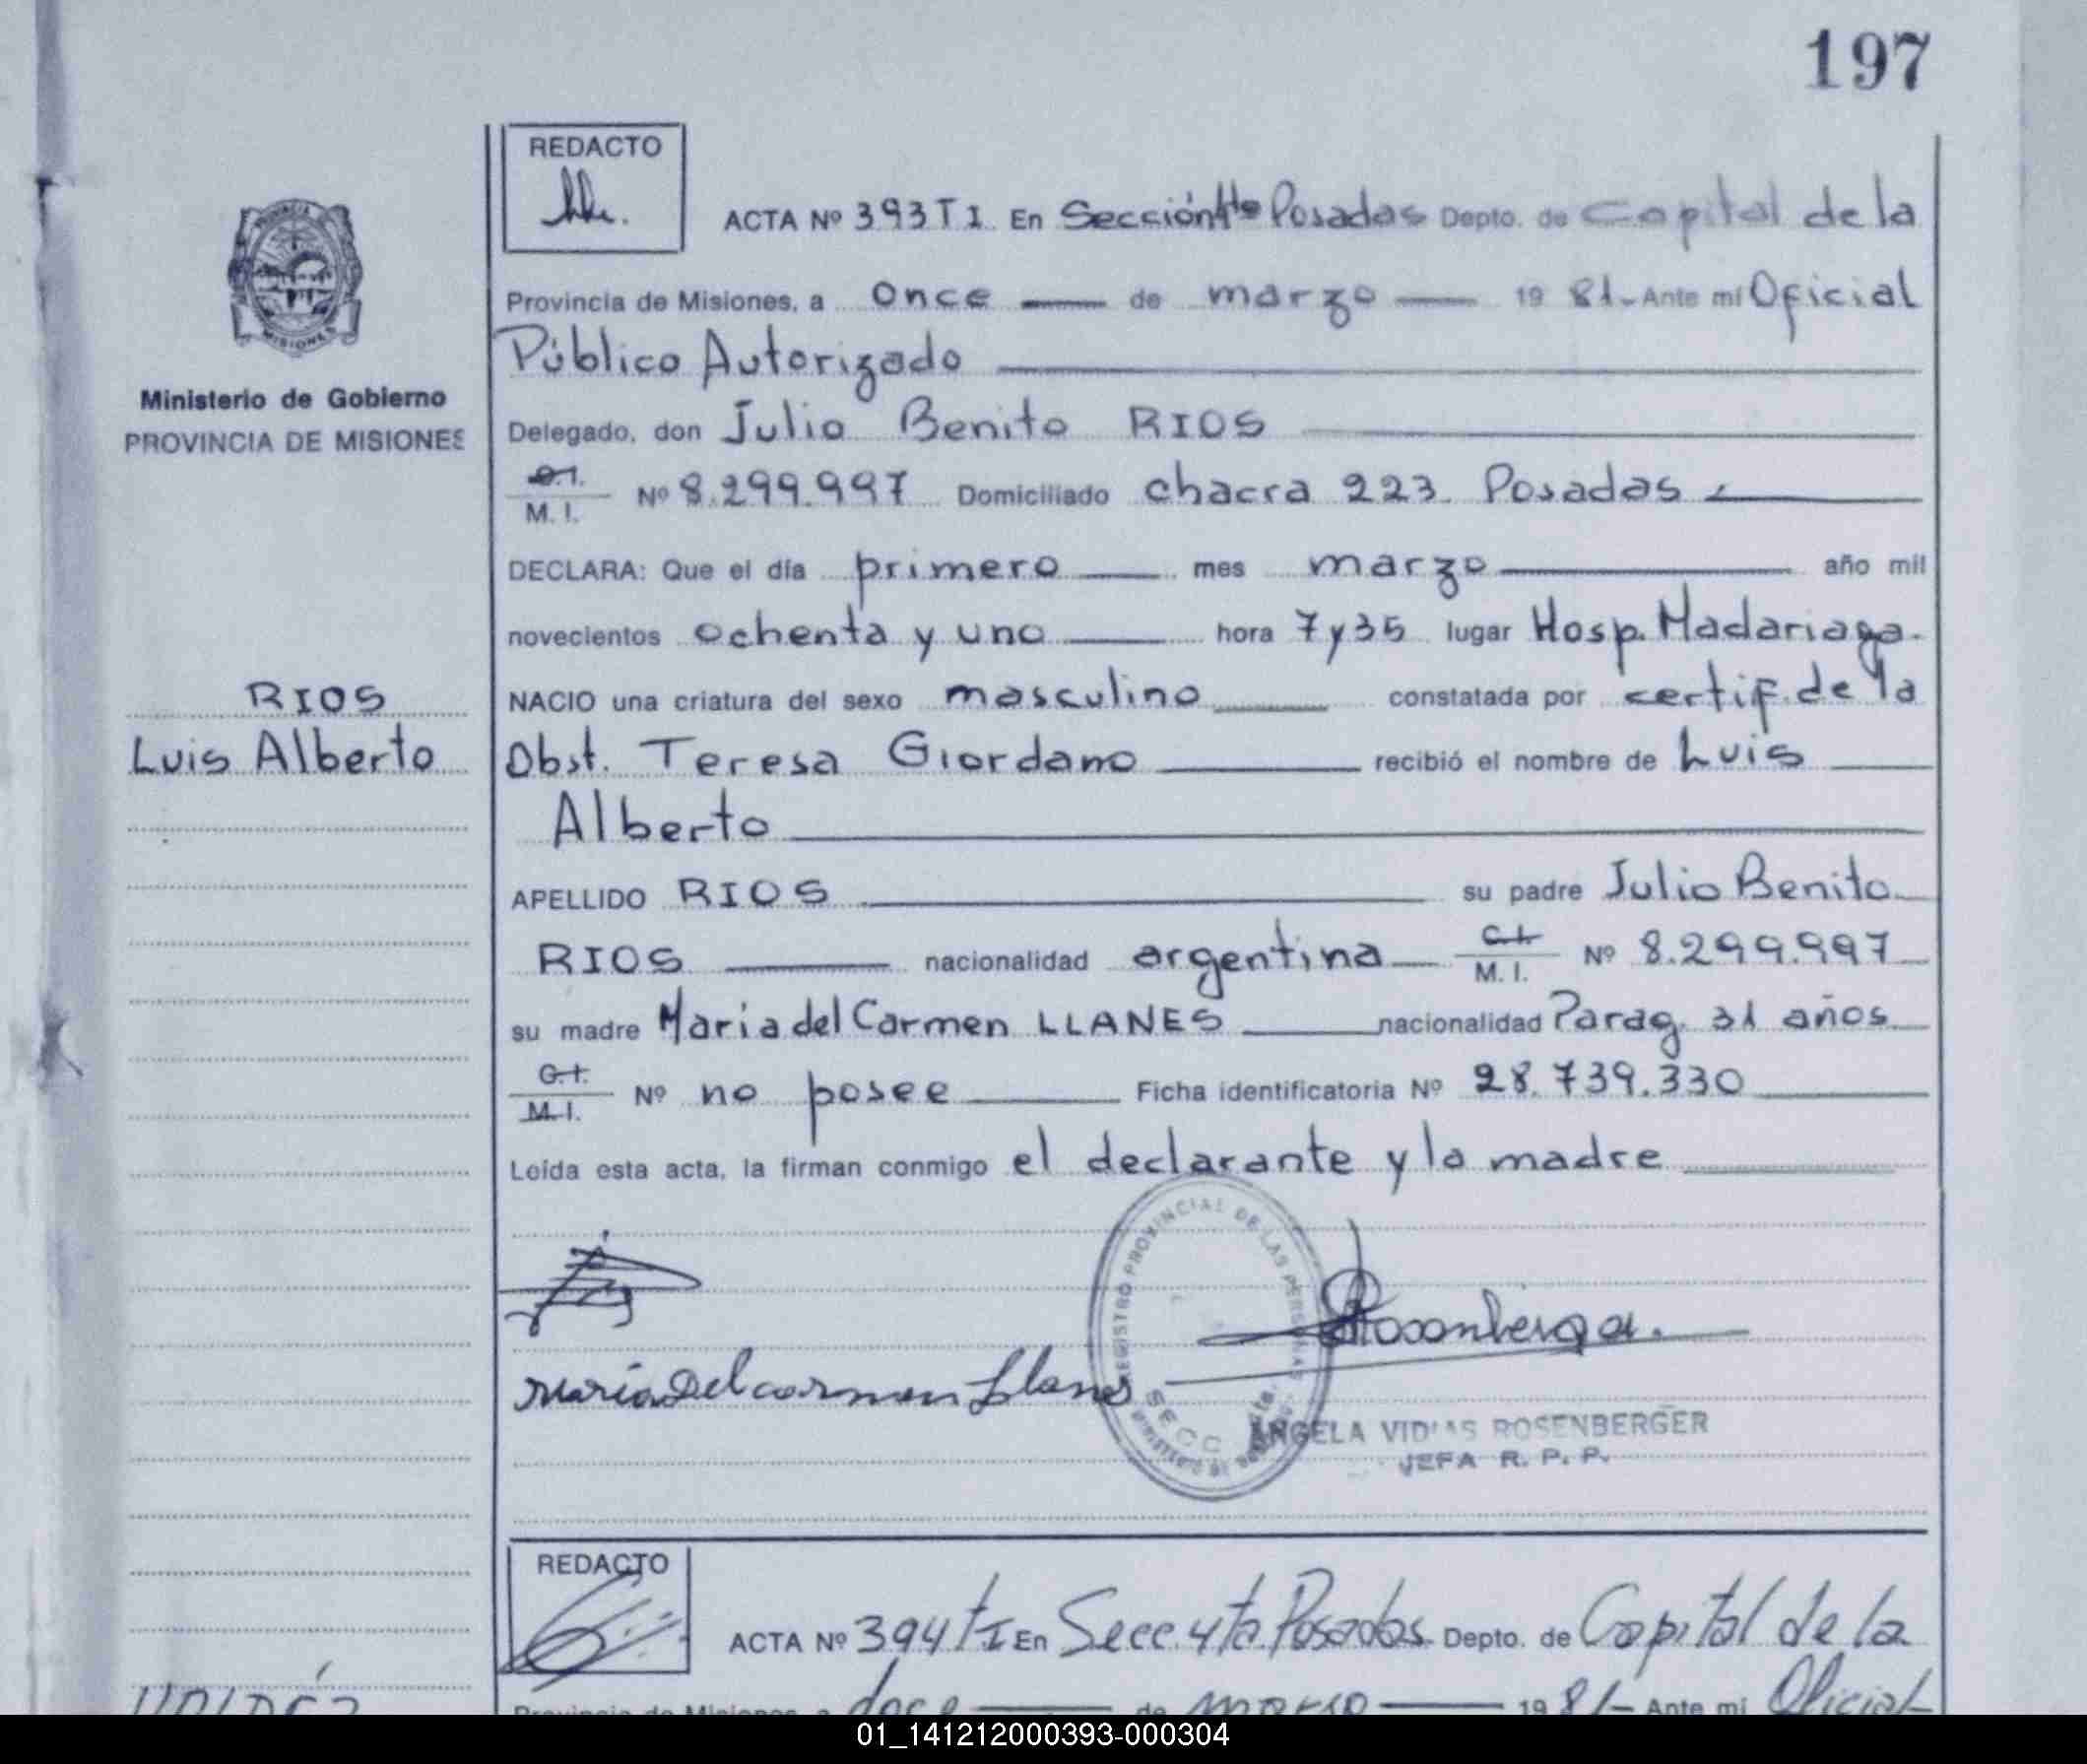 197
REDACTO
ACTA Nº 393 T I En Sección 4ta Posadas Depto. de Capital de la
Provincia de Misiones, a once de marzo 19 81.- Ante mi Oficial
Público Autorizado
Ministerio de Gobierno
PROVINCIA DE MISIONES
Delegado, don Julio Benito RIOS
M. I. Nº 8.299.997 Domiciliado chacra 223 Posadas
DECLARA: Que el día primero mes marzo año mil
novecientos ochenta y uno hora 7 y 35 lugar Hosp. Madariaga.
RIOS
Luis Alberto
NACIO una criatura del sexo masculino constatada por certif. de la
Obst. Teresa Giordano recibió el nombre de Luis
Alberto
APELLIDO RIOS su padre Julio Benito
RIOS nacionalidad argentina C.I. M. I. Nº 8.299.997
su madre Maria del Carmen LLANES nacionalidad Parag. 31 años
C.I. M.I. Nº no posee Ficha identificatoria Nº 28.739.330
Leída esta acta, la firman conmigo el declarante y la madre
REGISTRO PROVINCIAL DE LAS PERSONAS
SECC
Maria Del carmen Llanes
Rosenberger
ANGELA VIDIAS ROSENBERGER
JEFA R. P. P.
REDACTO
ACTA Nº 394 t I En Secc. 4ta Posadas Depto. de Capital de la
Provincia de Misiones, a doce de marzo 19 81- Ante mi Oficial
01_141212000393-000304